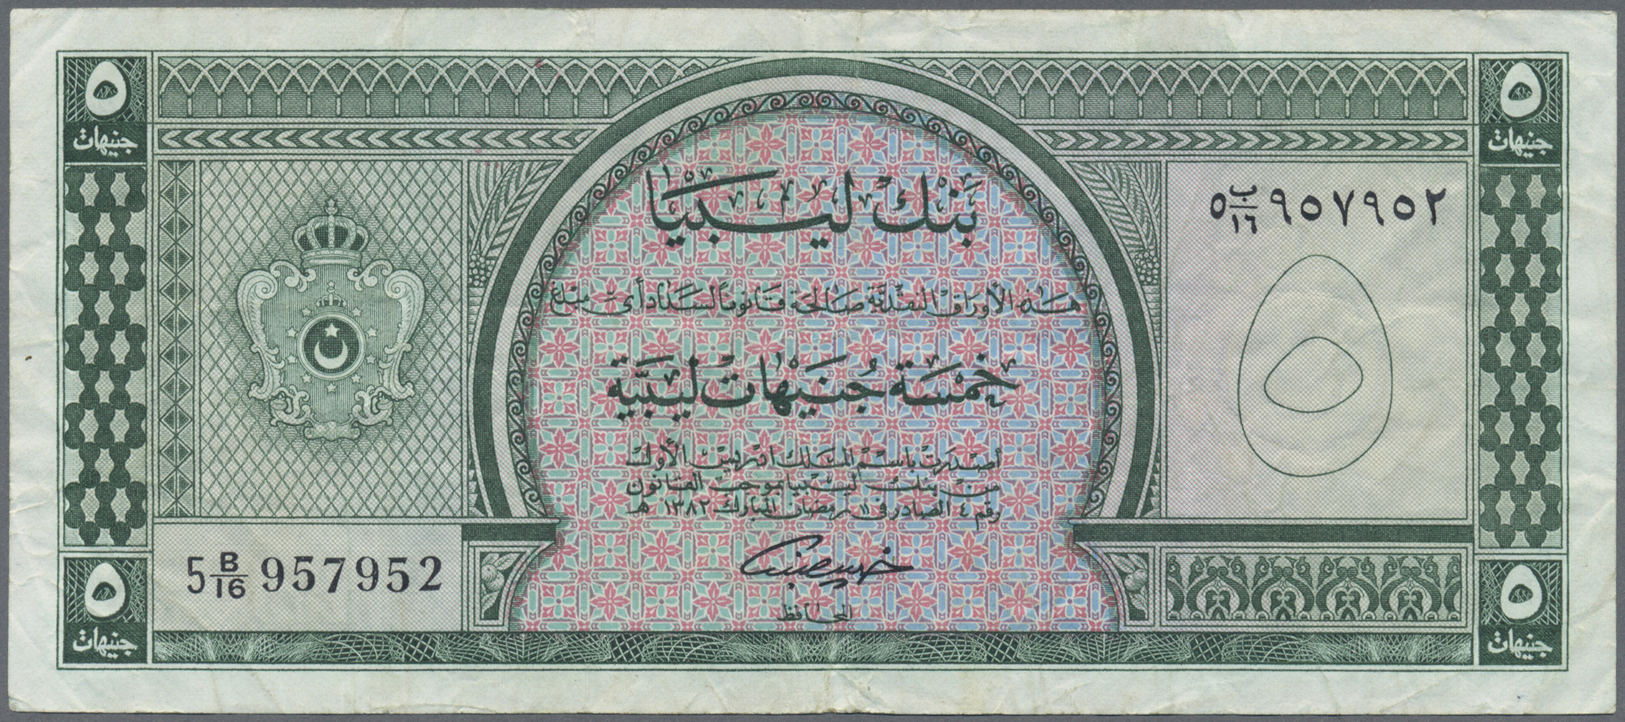 ٥
جنيهات
٥
جنيهات
بَنْك لِيبْيَا
٥ ب/١٦ ٩٥٧٩٥٢
هذه الأوراق النقدية صالحة قانوناً لسداد أي مبلغ
خَمْسَة جُنَيْهَات لِيبِيَّة
٥
أصدرت باسم الملك ادريس الأول
من بنك ليبيا بموجب القانون
رقم ٤ الصادر في ١١ رمضان المبارك ١٣٨٢ هـ
5 B/16 957952
المحافظ
٥
جنيهات
٥
جنيهات